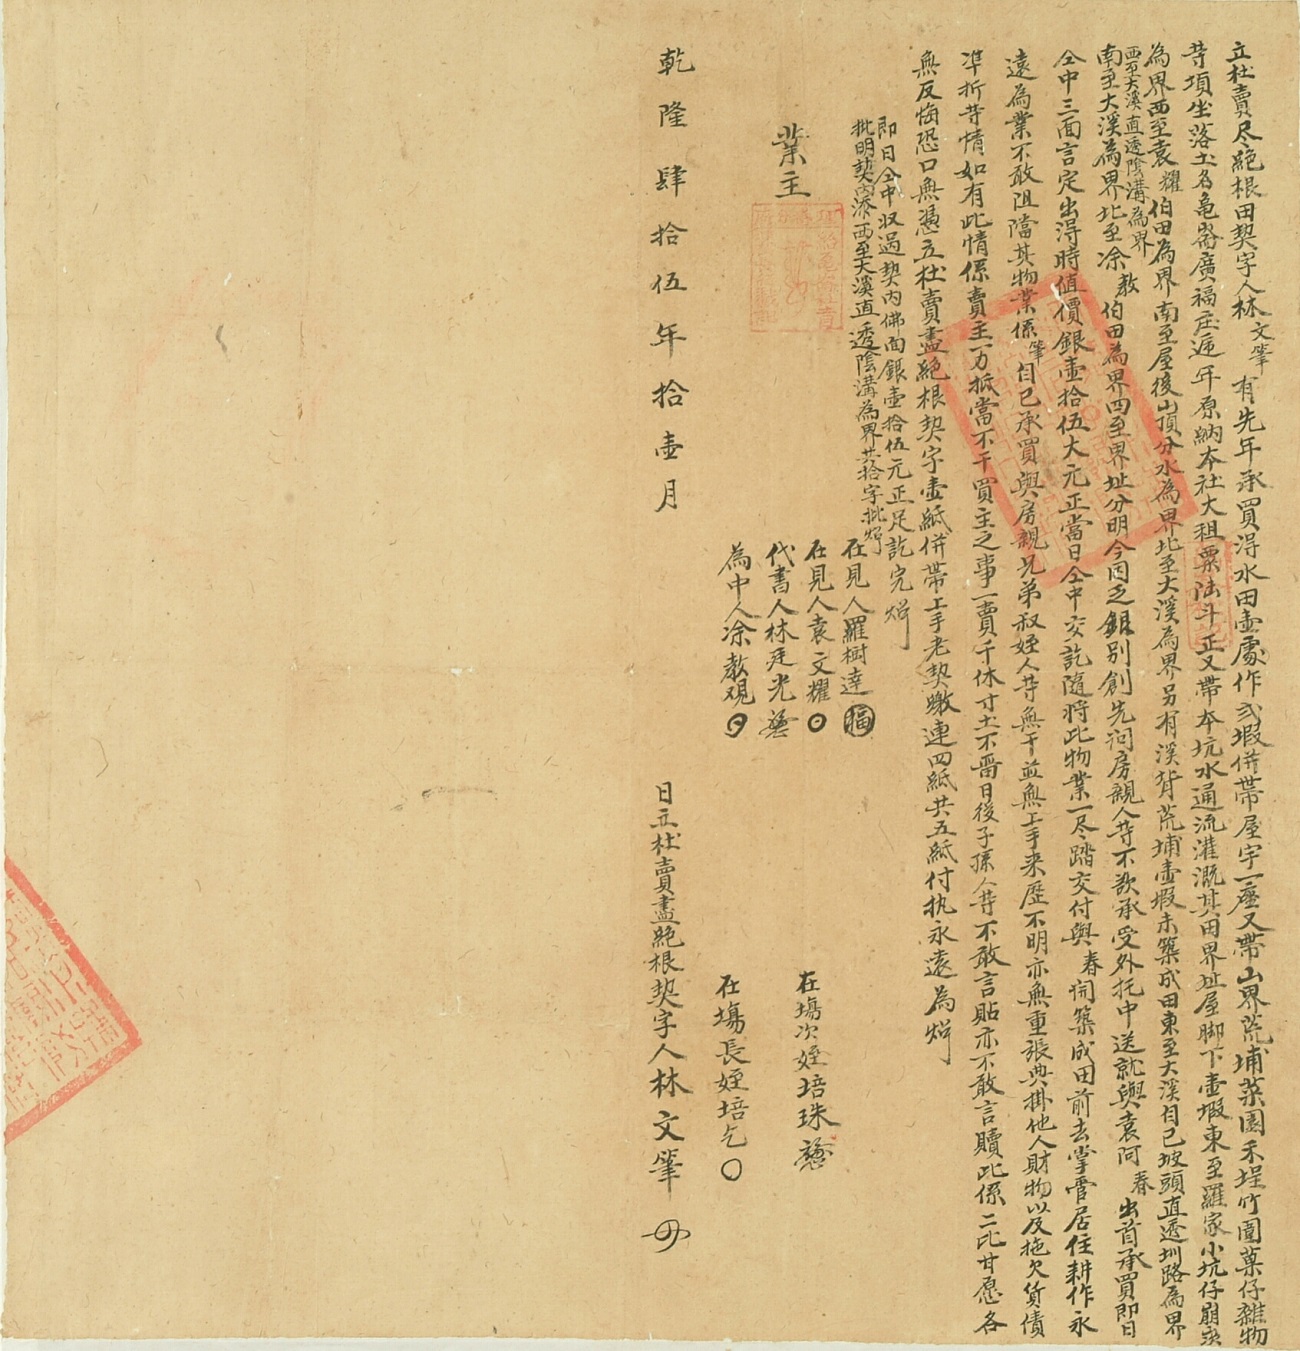 立杜賣尽絕根田契字人林文筆有先年承買淂水田壹處作弍塅併帶屋宇一座又帶山界荒埔菜園禾埕竹圍菓仔雜物
等項坐落土名亀崙廣福庄遞年原納本社大租粟陆斗正又帶本坑水通流灌溉其田界址屋脚下壹塅東至羅家小坑仔崩
為界西至袁耀伯田為界南至屋後山頂分水為界北至大溪為界另有溪背荒埔壹塅未築成田東至大溪自己坡頭直透圳路為界
西至大溪直透陰溝為界
南至大溪為界北至凃教伯田為界四至界址分明今因乏銀別創先问房親人等不欲承受外托中送就與袁阿春出首承買即日
仝中三面言定出淂時值價銀壹拾伍大元正當日仝中交訖隨将此物業一尽踏交付與春開築成田前去掌管居住耕作永
遠為業不敢阻擋其物業係筆自己承買與房親兄弟叔姪人等無干並無上手来歷不明亦無重張典掛他人財物以及拖欠貨債
準折等情如有此情係賣主一力抵當不干買主之事一賣千休寸土不畱日後子孫人等不敢言貼亦不敢言贖此係二比甘愿各
無反悔恐口無憑立杜賣盡絕根契字壹紙併帶上手老契繳連四紙共五紙付执永遠為炤
即日仝中収過契内佛面銀壹拾伍元正足訖完炤
批明契内添西至大溪直透陰溝為界共拾字批炤
業主
在見人羅樹達 福
在見人袁文耀
代書人林廷光
為中人凃教观
在塲次姪培珠
在塲長姪培乞
乾隆肆拾伍年拾壹月 日立杜賣盡絕根契字人林文筆